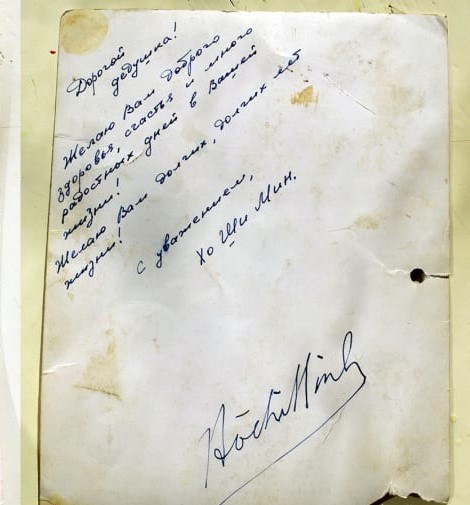 Дорогой
дедушка!
Желаю Вам доброго
здоровья, счастья и много
радостных дней в Вашей
жизни!
Желаю Вам долгих, долгих лет
жизни!
с уважением,
Хо Ши Мин.
Hồ Chí Minh